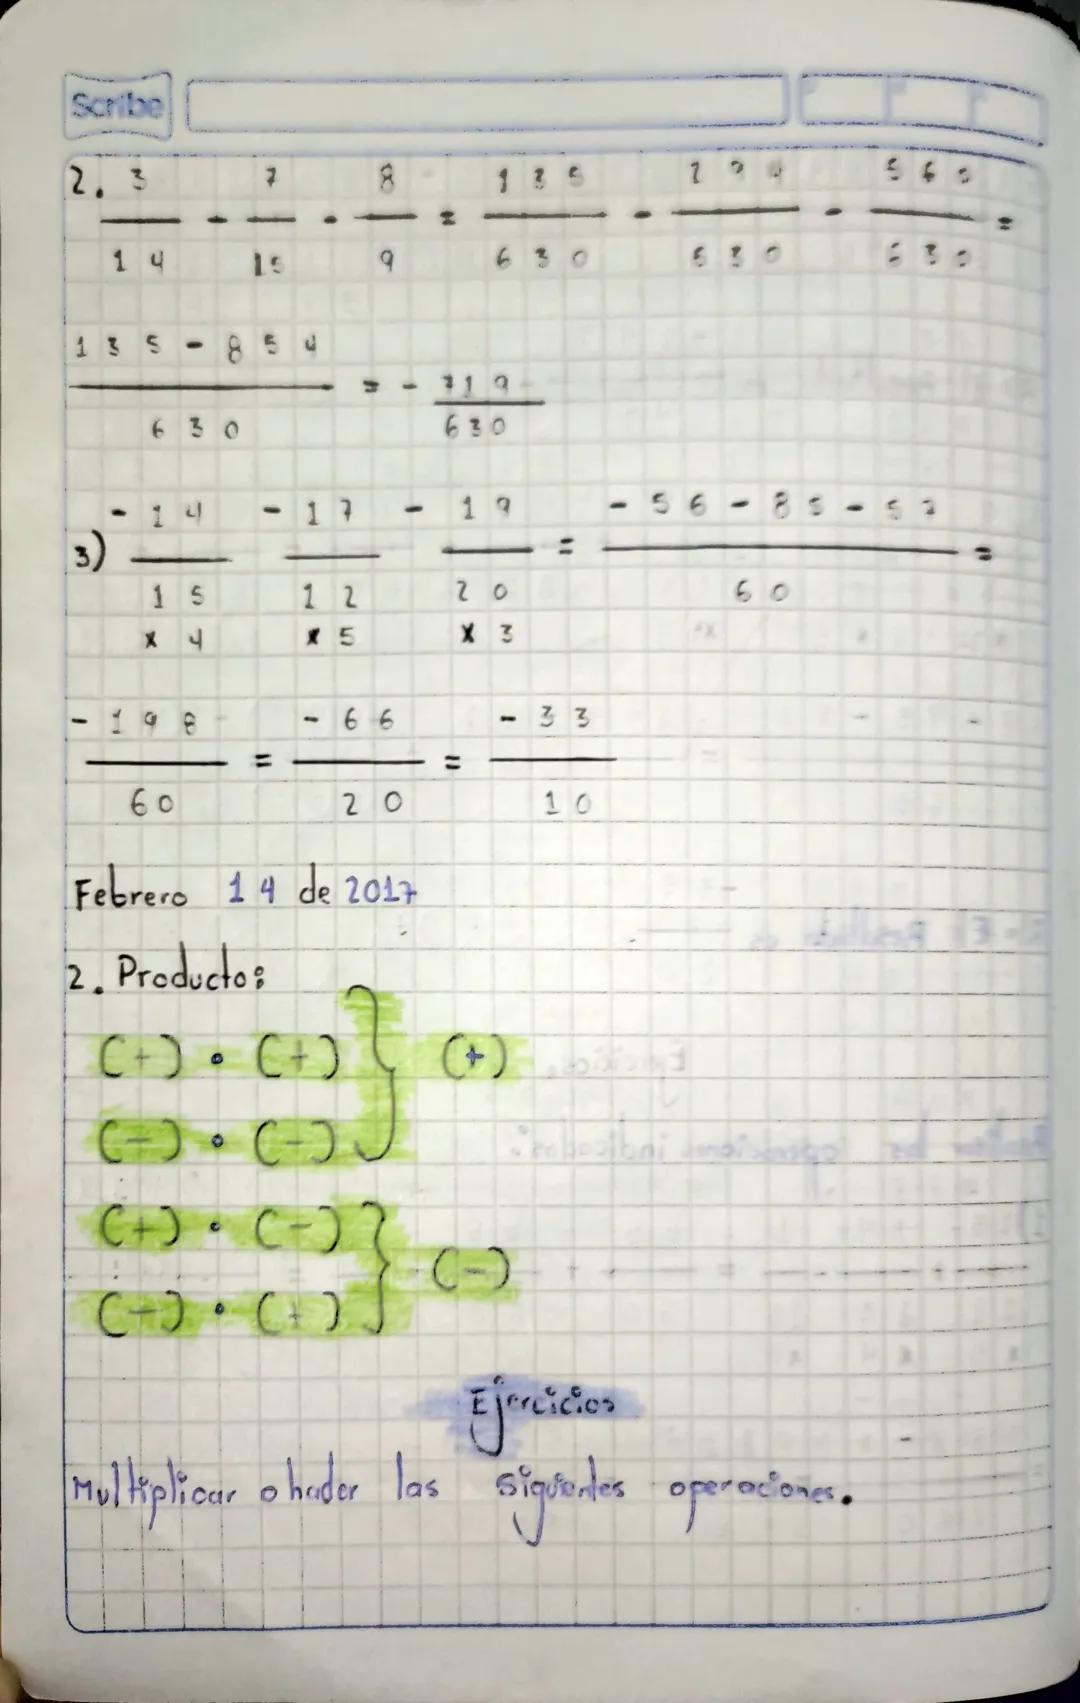 Scribe
2. 3/14 - 7/15 - 8/9 = 135/630 - 294/630 - 560/630 =
135-854/630 = - 719/630
3) -14/15 -17/12 -19/20 = -56-85-57/60 =
×4 ×5 ×3
-198/60 = -66/20 = -33/10
Febrero 14 de 2017
2. Producto:
(+) · (+) } (+)
(-) · (-)
(+) · (-) } (-)
(-) · (+)
Ejercicios
Multiplicar o hader las siguientes operaciones.